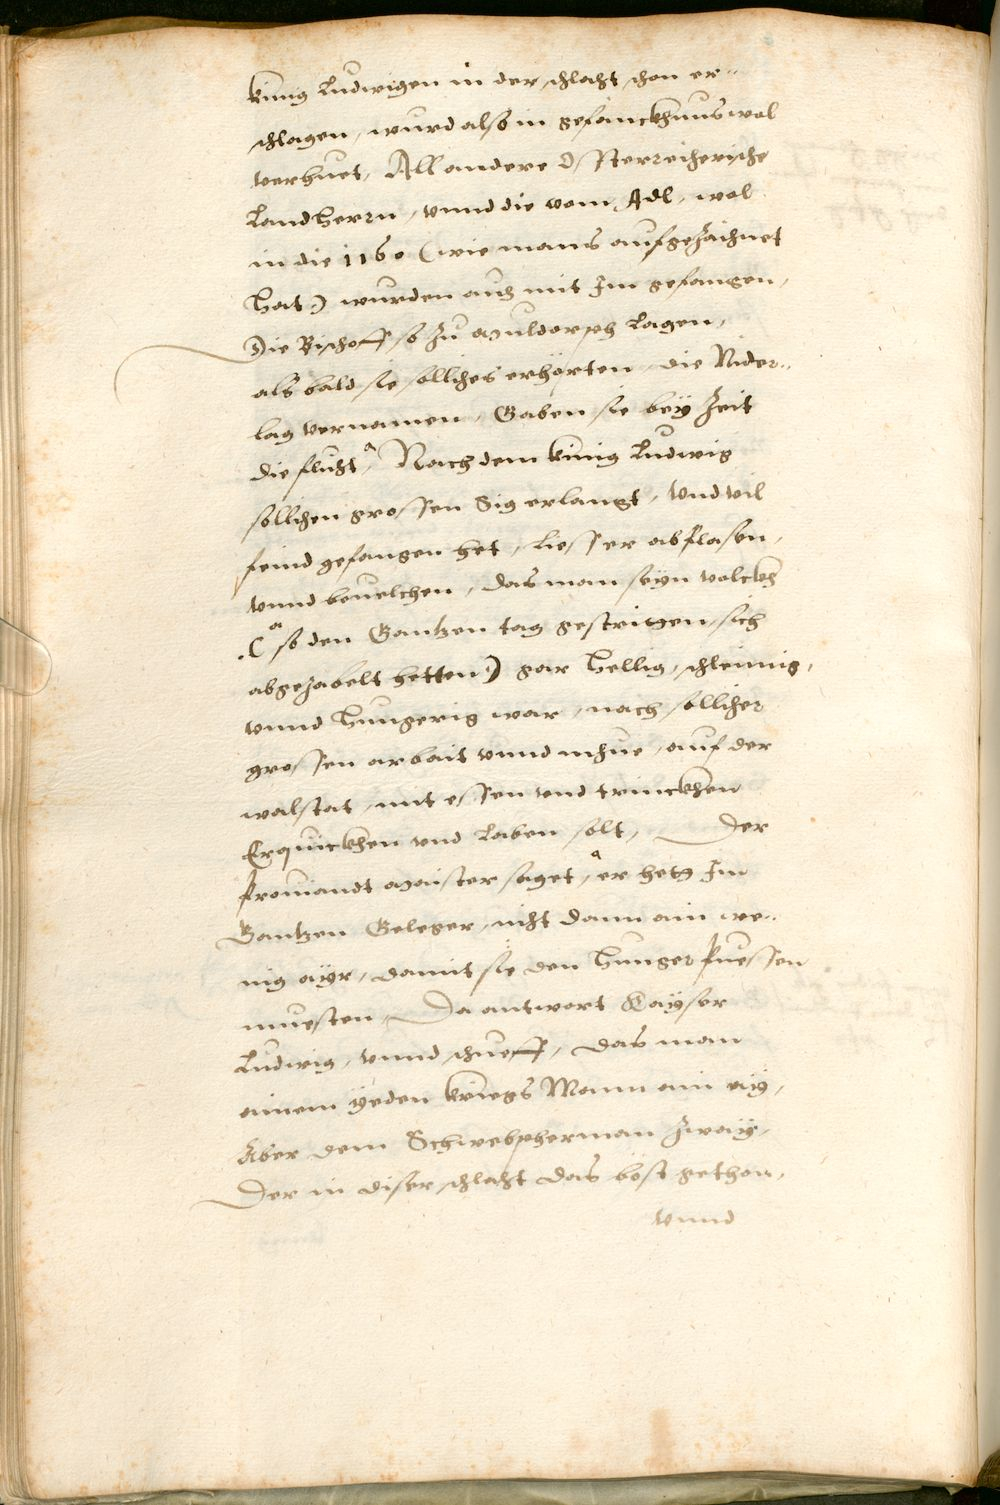 künig Ludwigen in der schlacht schon er-
schlagen, wurd also in gefänckhnus wol
verhuet, All andere Österreicherische
Landtherrn, vnnd die vom Adl, wol
in die 1160 (wie mans aufgezaichnet
hat) wurden auch mit Im gefangen,
Die Bischoff so zu Muldorph lagen,
als bald sie solliches erhörten, die Nider-
lag vernamen, Gaben sie bey Zeit
die flucht, Nach dem künig Ludwig
sollichen grossen Sig erlangt, vnd vil
feind gefangen het, liess er abblasen,
vnnd beuelchen, das man seyn volckh
(so den Gantzen tag gestriten sich
abgezabelt hetten) gar hellig, schleunig,
vnnd hungerig war, nach sollicher
grossen arbait vnnd mhue, auf der
walstat, mit essen vnd trinckhen
Erquickhen vnd Laben solt, Der
Profiandt Maister saget, er hets Im
Gantzen Geleger, nicht dann ain we-
nig ayr, damit sie den hunger Puessen
muesten, Da antwort Kayser
Ludwig, vnnd schueff, das man
ainem yeden kriegs Mann ain ay,
Aber dem Schwebpherman zway,
Der in diser schlacht das böst gethon,
vnnd